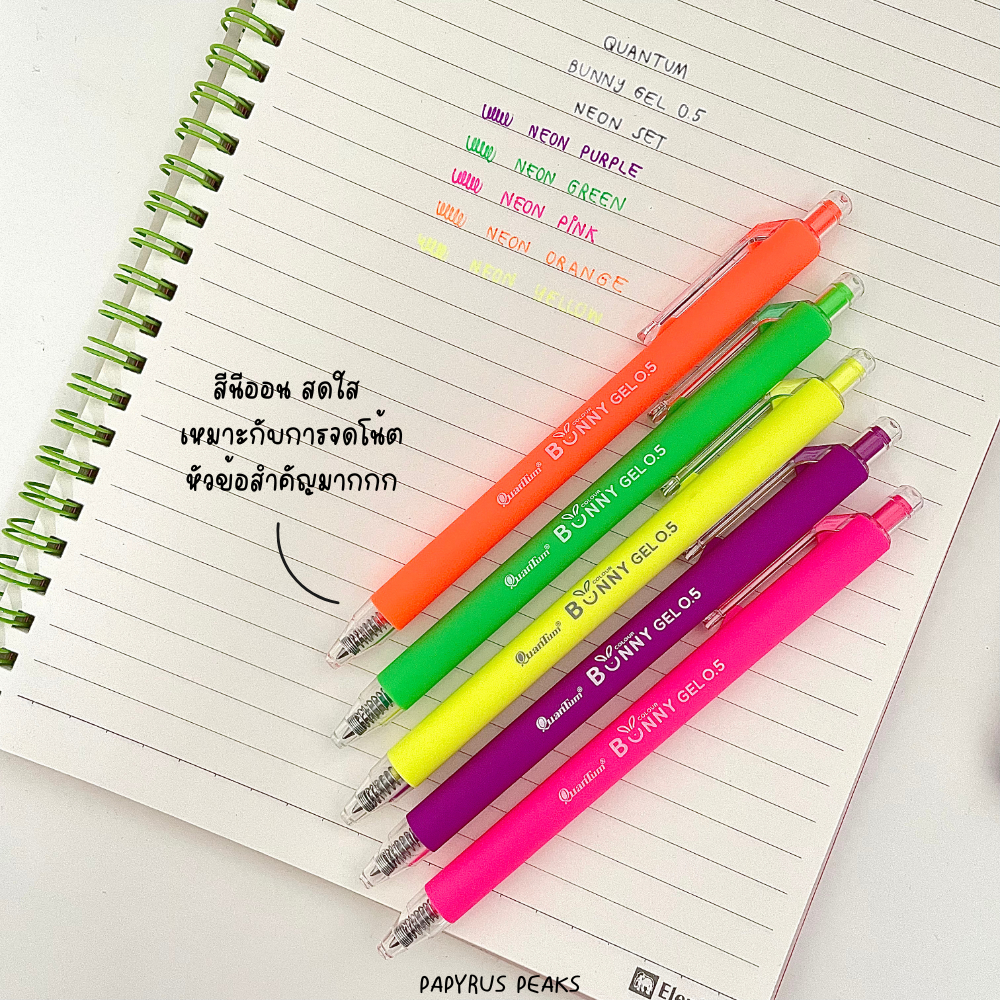 QUANTUM
BUNNY GEL 0.5
NEON SET
NEON PURPLE
NEON GREEN
NEON PINK
NEON ORANGE
NEON YELLOW
สีนีออน สดใส
เหมาะกับการจดโน้ต
หัวข้อสำคัญมากกก
QuanTum® COLOUR BUNNY GEL 0.5
QuanTum® COLOUR BUNNY GEL 0.5
QuanTum® COLOUR BUNNY GEL 0.5
QuanTum® COLOUR BUNNY GEL 0.5
QuanTum® COLOUR BUNNY GEL 0.5
PAPYRUS PEAKS